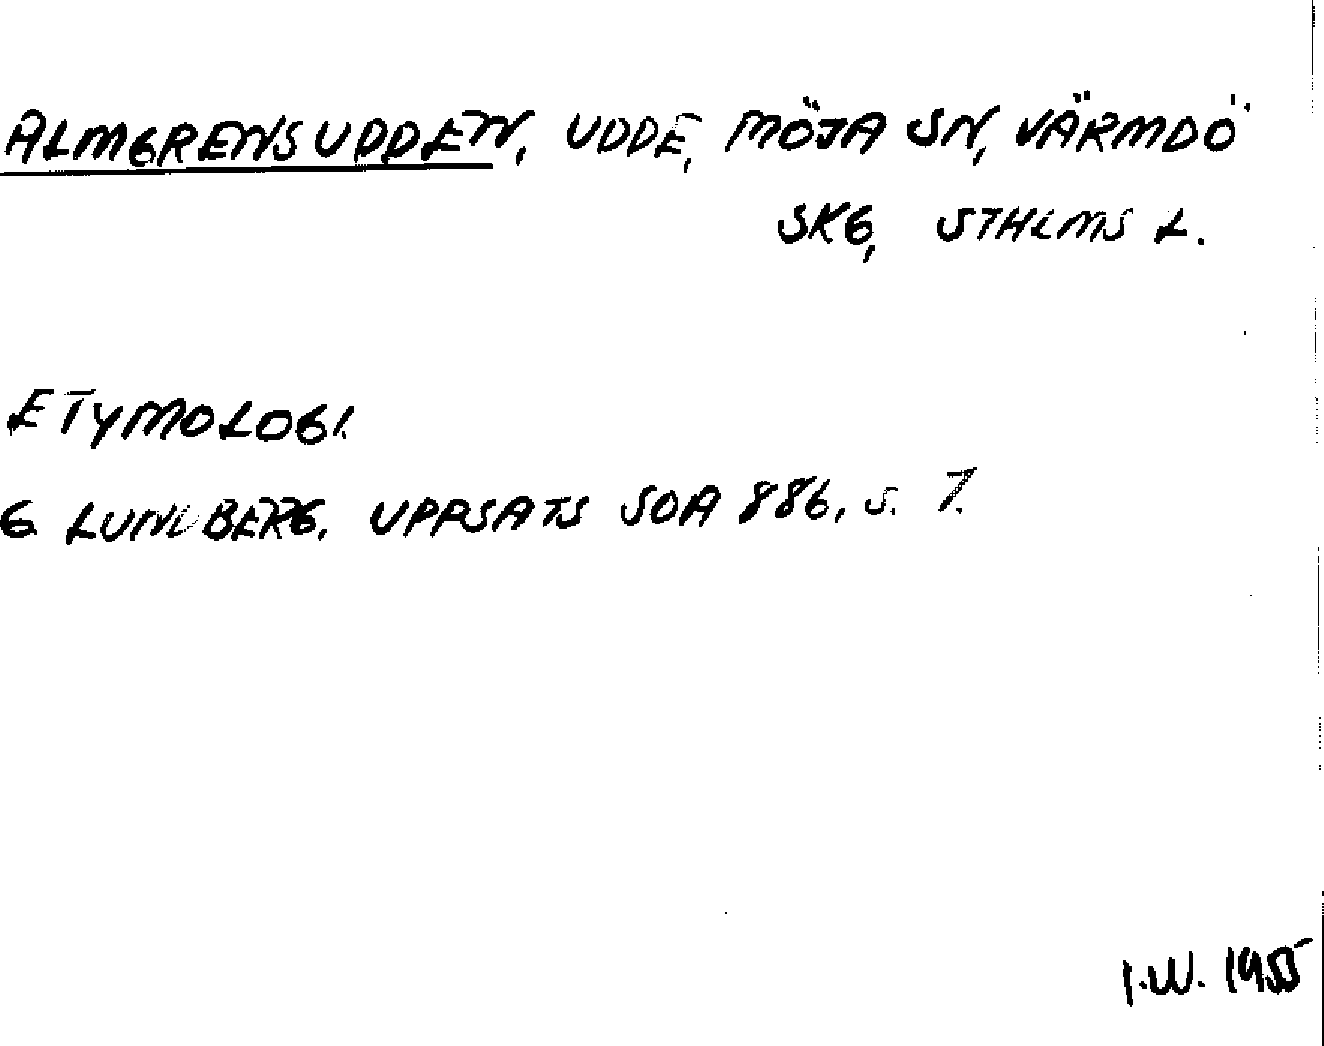 ALMGRENSUDDEN, UDDE, MÖJA SN, VÄRMDÖ
SKG, STHLMS L.
ETYMOLOGI.
G. LUNDBERG, UPPSATS SOA 886, S. 7.
I.W. 1955